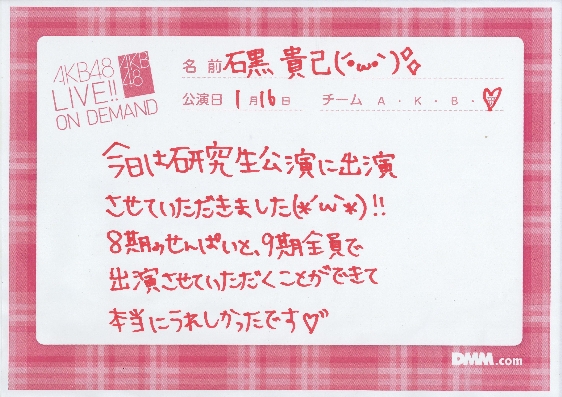 AKB48
LIVE!!
ON DEMAND
AKB
48
名前 石黒 貴己(´・ω・`)
公演日 1月16日 チーム A・K・B・研
今日は研究生公演に出演
させていただきました(*´ω`*)!!
8期のせんぱいと、9期全員で
出演させていただくことができて
本当にうれしかったです♡
DMM.com